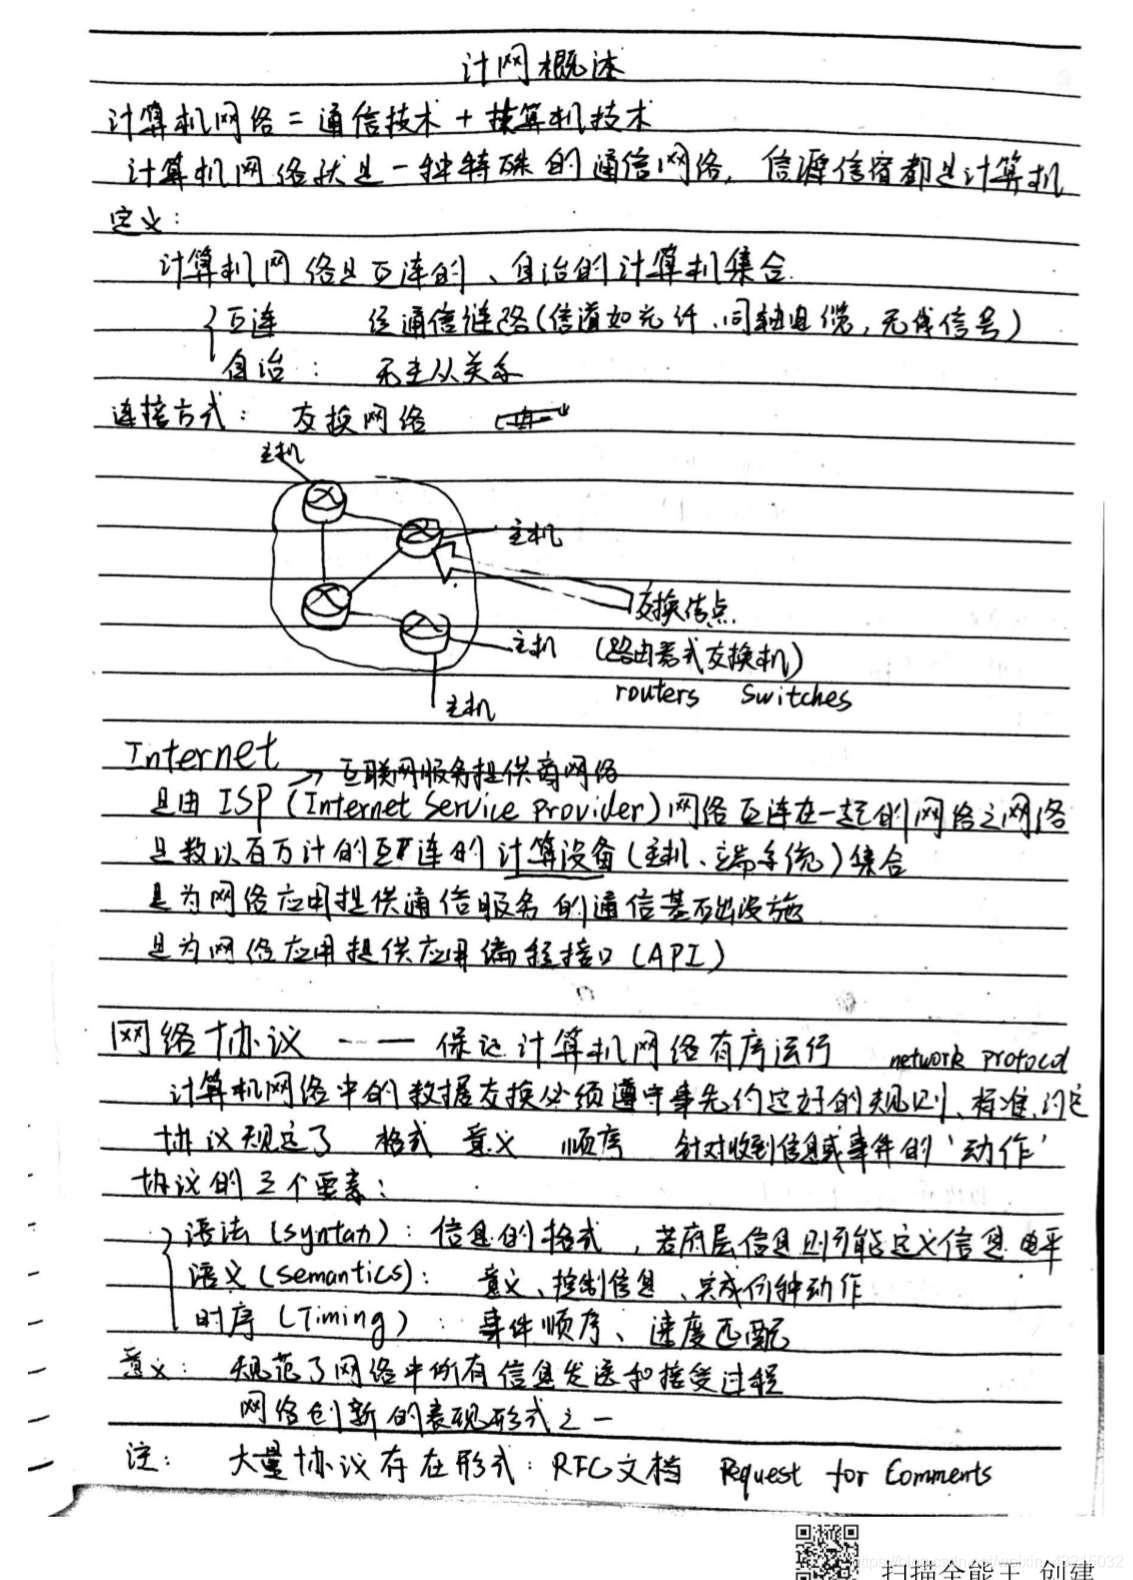 计网概述
计算机网络 = 通信技术 + 计算机技术
计算机网络就是一种特殊的通信网络,信源信宿都是计算机
定义:
计算机网络是互连的、自治的计算机集合.
互连 经通信链路(信道如光纤、同轴电缆,无线信号)
自治: 无主从关系
连接方式: 交换网络
主机
主机
交换结点
主机 (路由器或交换机)
routers Switches
主机
Internet
→ 互联网服务提供商网络
是由 ISP (Internet Service Provider) 网络互连在一起的网络之网络
是数以百万计的互连的计算设备(主机、端系统)集合
是为网络应用提供通信服务的通信基础设施
是为网络应用提供应用编程接口(API)
网络协议 —— 保证计算机网络有序运行 network protocol
计算机网络中的数据交换必须遵守事先约定好的规则、标准、约定
协议规定了 格式 意义 顺序 针对收到信息或事件的'动作'
协议的三个要素:
语法(syntax): 信息的格式 ,若底层信息则可能定义信息电平
语义(Semantics): 意义、控制信息、完成何种动作
时序(Timing): 事件顺序、速度匹配
意义: 规范了网络中所有信息发送和接受过程
网络创新的表现形式之一
注: 大量协议存在形式: RFC文档 Request for Comments
扫描全能王 创建